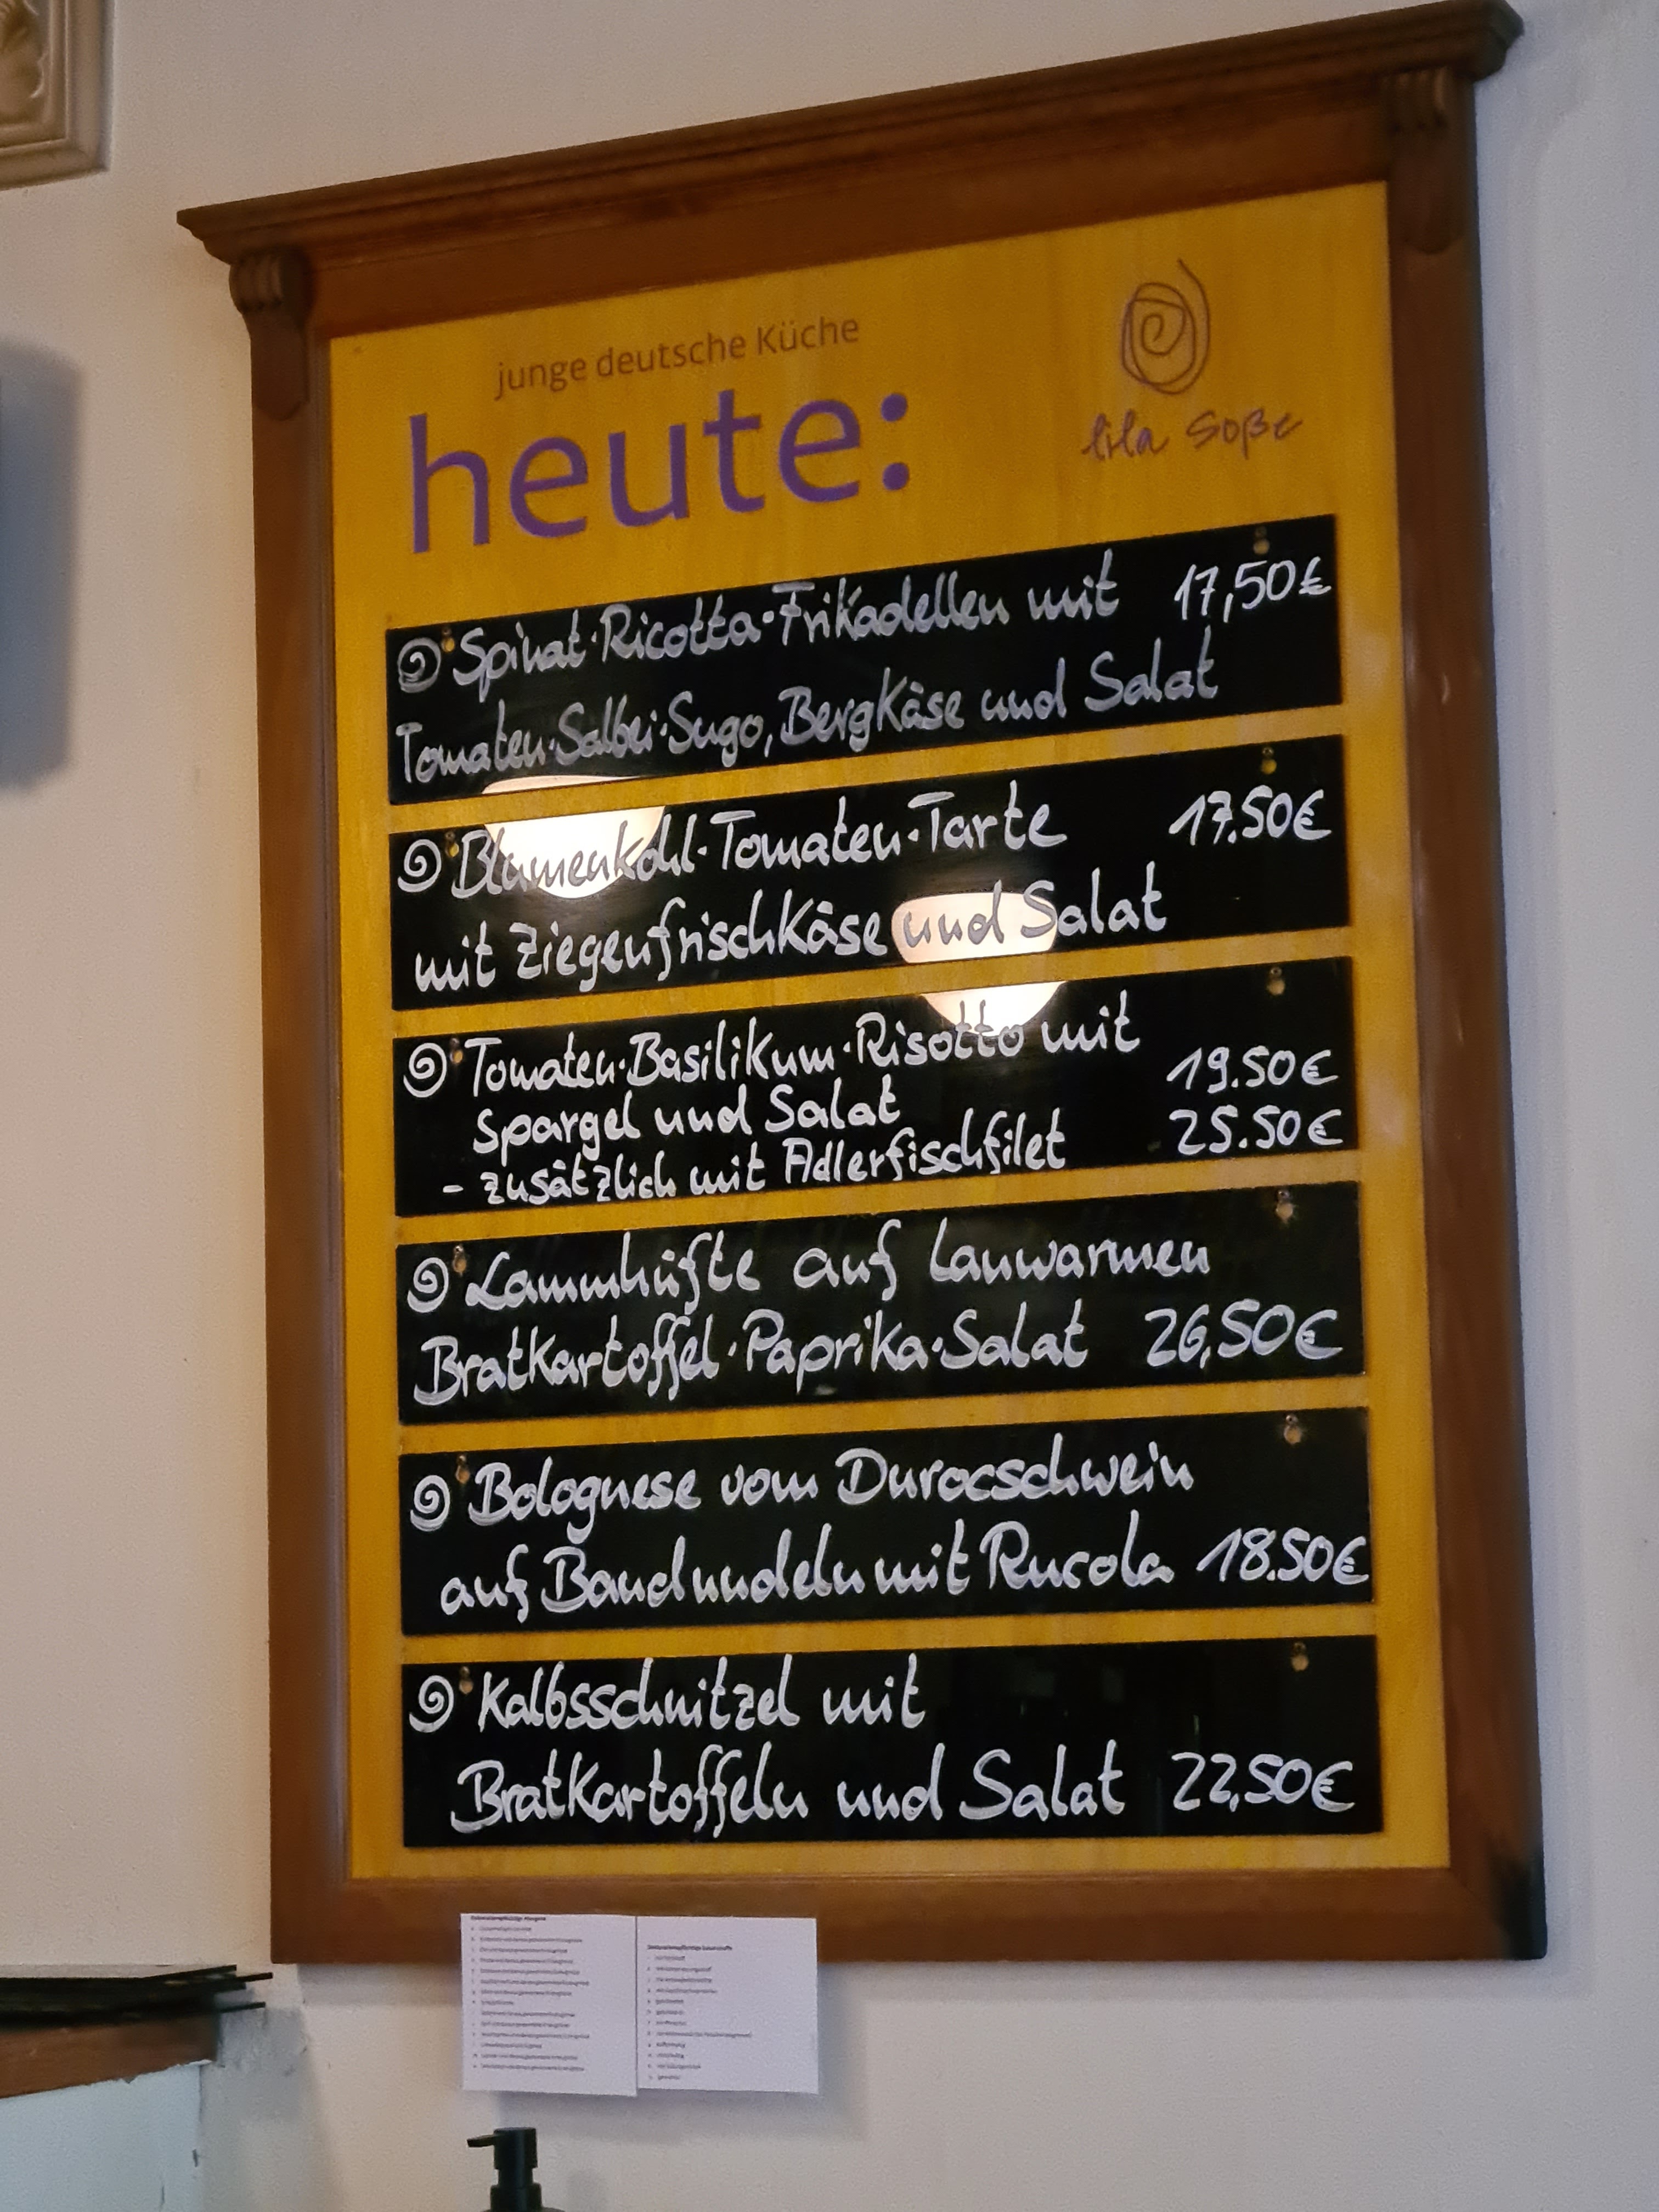 junge deutsche Küche
heute:
lila Soße
Spinat-Ricotta-Frikadellen mit 17,50€
Tomaten-Salbei-Sugo, Bergkäse und Salat
Blumenkohl-Tomaten-Tarte 17.50€
mit Ziegenfrischkäse und Salat
Tomaten-Basilikum-Risotto mit
Spargel und Salat 19.50€
- zusätzlich mit Adlerfischfilet 25.50€
Lammhüfte auf lauwarmen
Bratkartoffel-Paprika-Salat 26,50€
Bolognese vom Durocschwein
auf Bandnudeln mit Rucola 18.50€
Kalbsschnitzel mit
Bratkartoffeln und Salat 22,50€